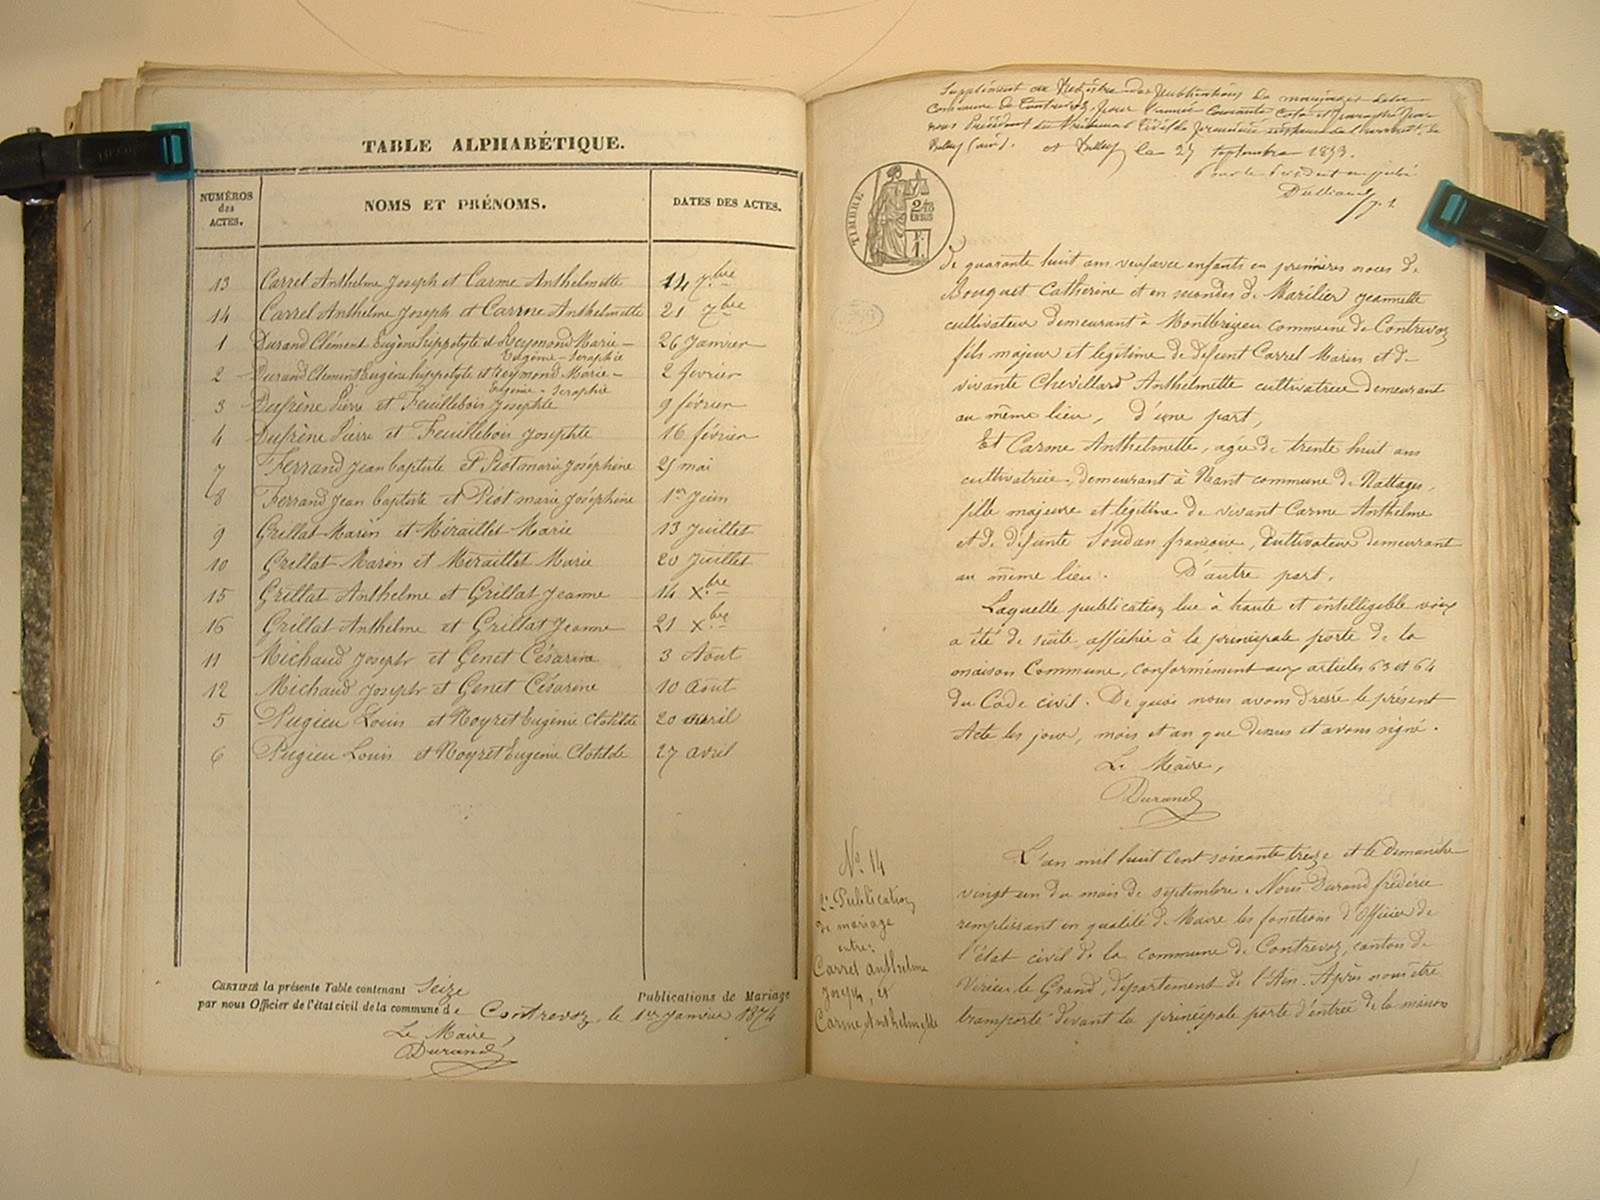 TABLE ALPHABÉTIQUE.
NUMÉROS des ACTES.
NOMS ET PRÉNOMS.
DATES DES ACTES.
13 Carrel Anthelme Joseph et Carme Anthelmette 14 7bre
14 Carrel Anthelme Joseph et Carme Anthelmette 21 7bre
1 Durand Clément Eugène hippolyte et Reymond Marie - Eugénie - Seraphie 26 Janvier
2 Durand Clément Eugène hippolyte et Reymond Marie - Eugénie - Seraphie 2 fevrier
3 Dufrène Pierre et Feuillebois Josephte 9 février
4 Dufrène Pierre et Feuillebois Josephte 16 février
7 Ferrand Jean baptiste et Piot marie Joséphine 25 mai
8 Ferrand Jean baptiste et Piot marie Joséphine 1er Juin
9 Grillat Marin et Miraillet Marie 13 Juillet
10 Grillat Marin et Miraillet Marie 20 Juillet
15 Grillat Anthelme et Grillat Jeanne 14 Xbre
16 Grillat Anthelme et Grillat Jeanne 21 Xbre
11 Michaud Joseph et Genet Césarine 3 Août
12 Michaud Joseph et Genet Césarine 10 Août
5 Pugieu Louis et Noyret Eugénie Clotilde 20 avril
6 Pugieu Louis et Noyret Eugénie Clotilde 27 avril
CERTIFIÉ la présente Table contenant Seize Publications de Mariage
par nous Officier de l'état civil de la commune de Contrevoz, le 1er Janvier 1874
Le Maire,
Durand
Supplément au Registre des publications de mariages de la
commune de Contrevoz, pour l'année courante Coté et paraphé par
nous Président du Tribunal Civil de première instance de l'arrondt. de
Belley (ain). et Belley le 27 septembre 1873.
Pour le Président empêché
TIMBRE
de quarante huit ans veuf avec enfants en premières noces de
Bouquet Catherine et en secondes de Marilier Jeannette
cultivateur demeurant à Montbreyzieu commune de Contrevoz
fils majeur et légitime de défunt Carrel Marin et de
vivante Chevillard Anthelmette cultivatrice demeurant
au même lieu, d'une part,
Et Carme Anthelmette, agée de trente huit ans
cultivatrice, demeurant à Nant commune de Nattages,
fille majeure et légitime de vivant Carme Anthelme
et de défunte Soudan françoise, Cultivateur demeurant
au même lieu. D'autre part.
Laquelle publication lue à haute et intelligible voix
a été de suite affichée à la principale porte de la
maison Commune, conformément aux articles 63 et 64
du Code civil. De quoi nous avons dressé le présent
Acte les jour, mois et an que dessus et avons signé.
Le Maire,
Durand
No 14
2e Publication
de mariage
entre:
Carrel anthelme
Joseph, et
Carme Anthelmette
L'an mil huit cent soixante treize et le dimanche
vingt un du mois de septembre. Nous Durand frédéric
remplissant en qualité de Maire les fonctions d'Officier de
l'état civil de la commune de Contrevoz, canton de
Virieu le Grand, département de l'Ain. Après nous être
transporté devant la principale porte d'entrée de la maison